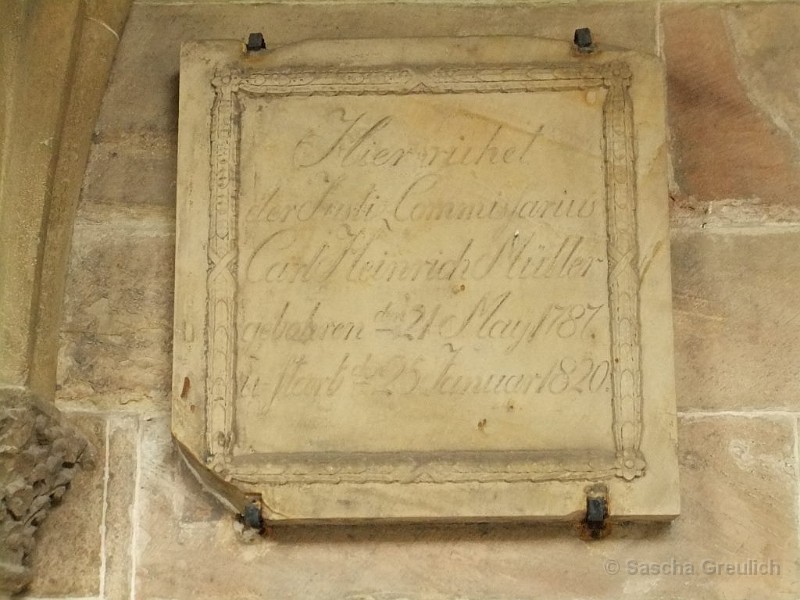 Hier ruhet
der Justiz Commissarius
Carl Heinrich Müller
gebohren den 21 May 1787.
u starb de 25 Januar 1820.
© Sascha Greulich